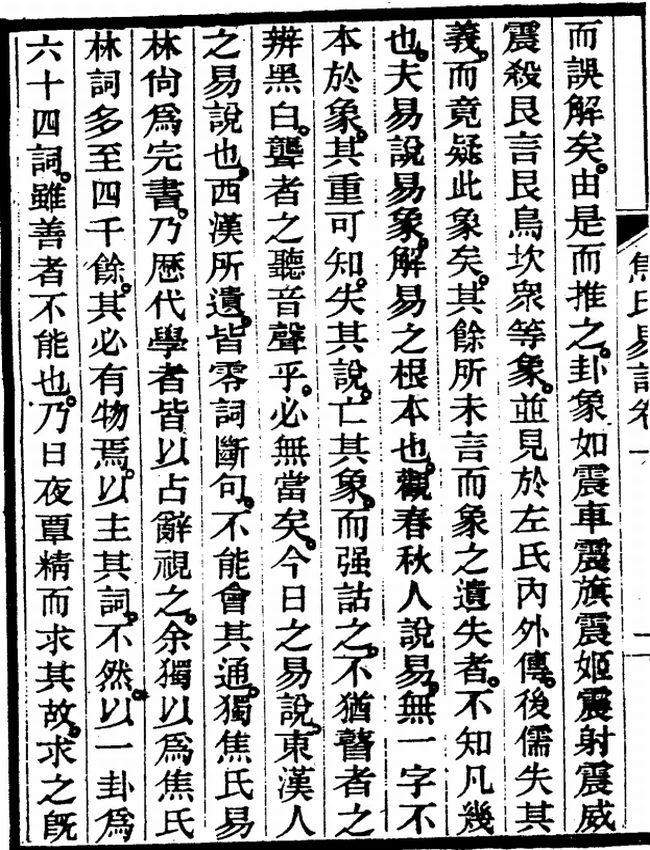 焦氏易詁卷一
一
而誤解矣。由是而推之。卦象如震車震旗震姬震射震威
震殺艮言艮鳥坎衆等象。並見於左氏內外傳。後儒失其
義。而竟疑此象矣。其餘所未言而象之遺失者。不知凡幾
也。夫易說易象。解易之根本也。觀春秋人說易。無一字不
本於象。其重可知。失其說。亡其象。而强詁之。不猶瞽者之
辨黑白。聾者之聽音聲乎。必無當矣。今日之易說。東漢人
之易說也。西漢所遺。皆零詞斷句。不能會其通。獨焦氏易
林尙爲完書。乃歷代學者皆以占辭視之。余獨以爲焦氏
林詞多至四千餘。其必有物焉。以主其詞。不然。以一卦爲
六十四詞。雖善者不能也。乃日夜覃精而求其故。求之旣